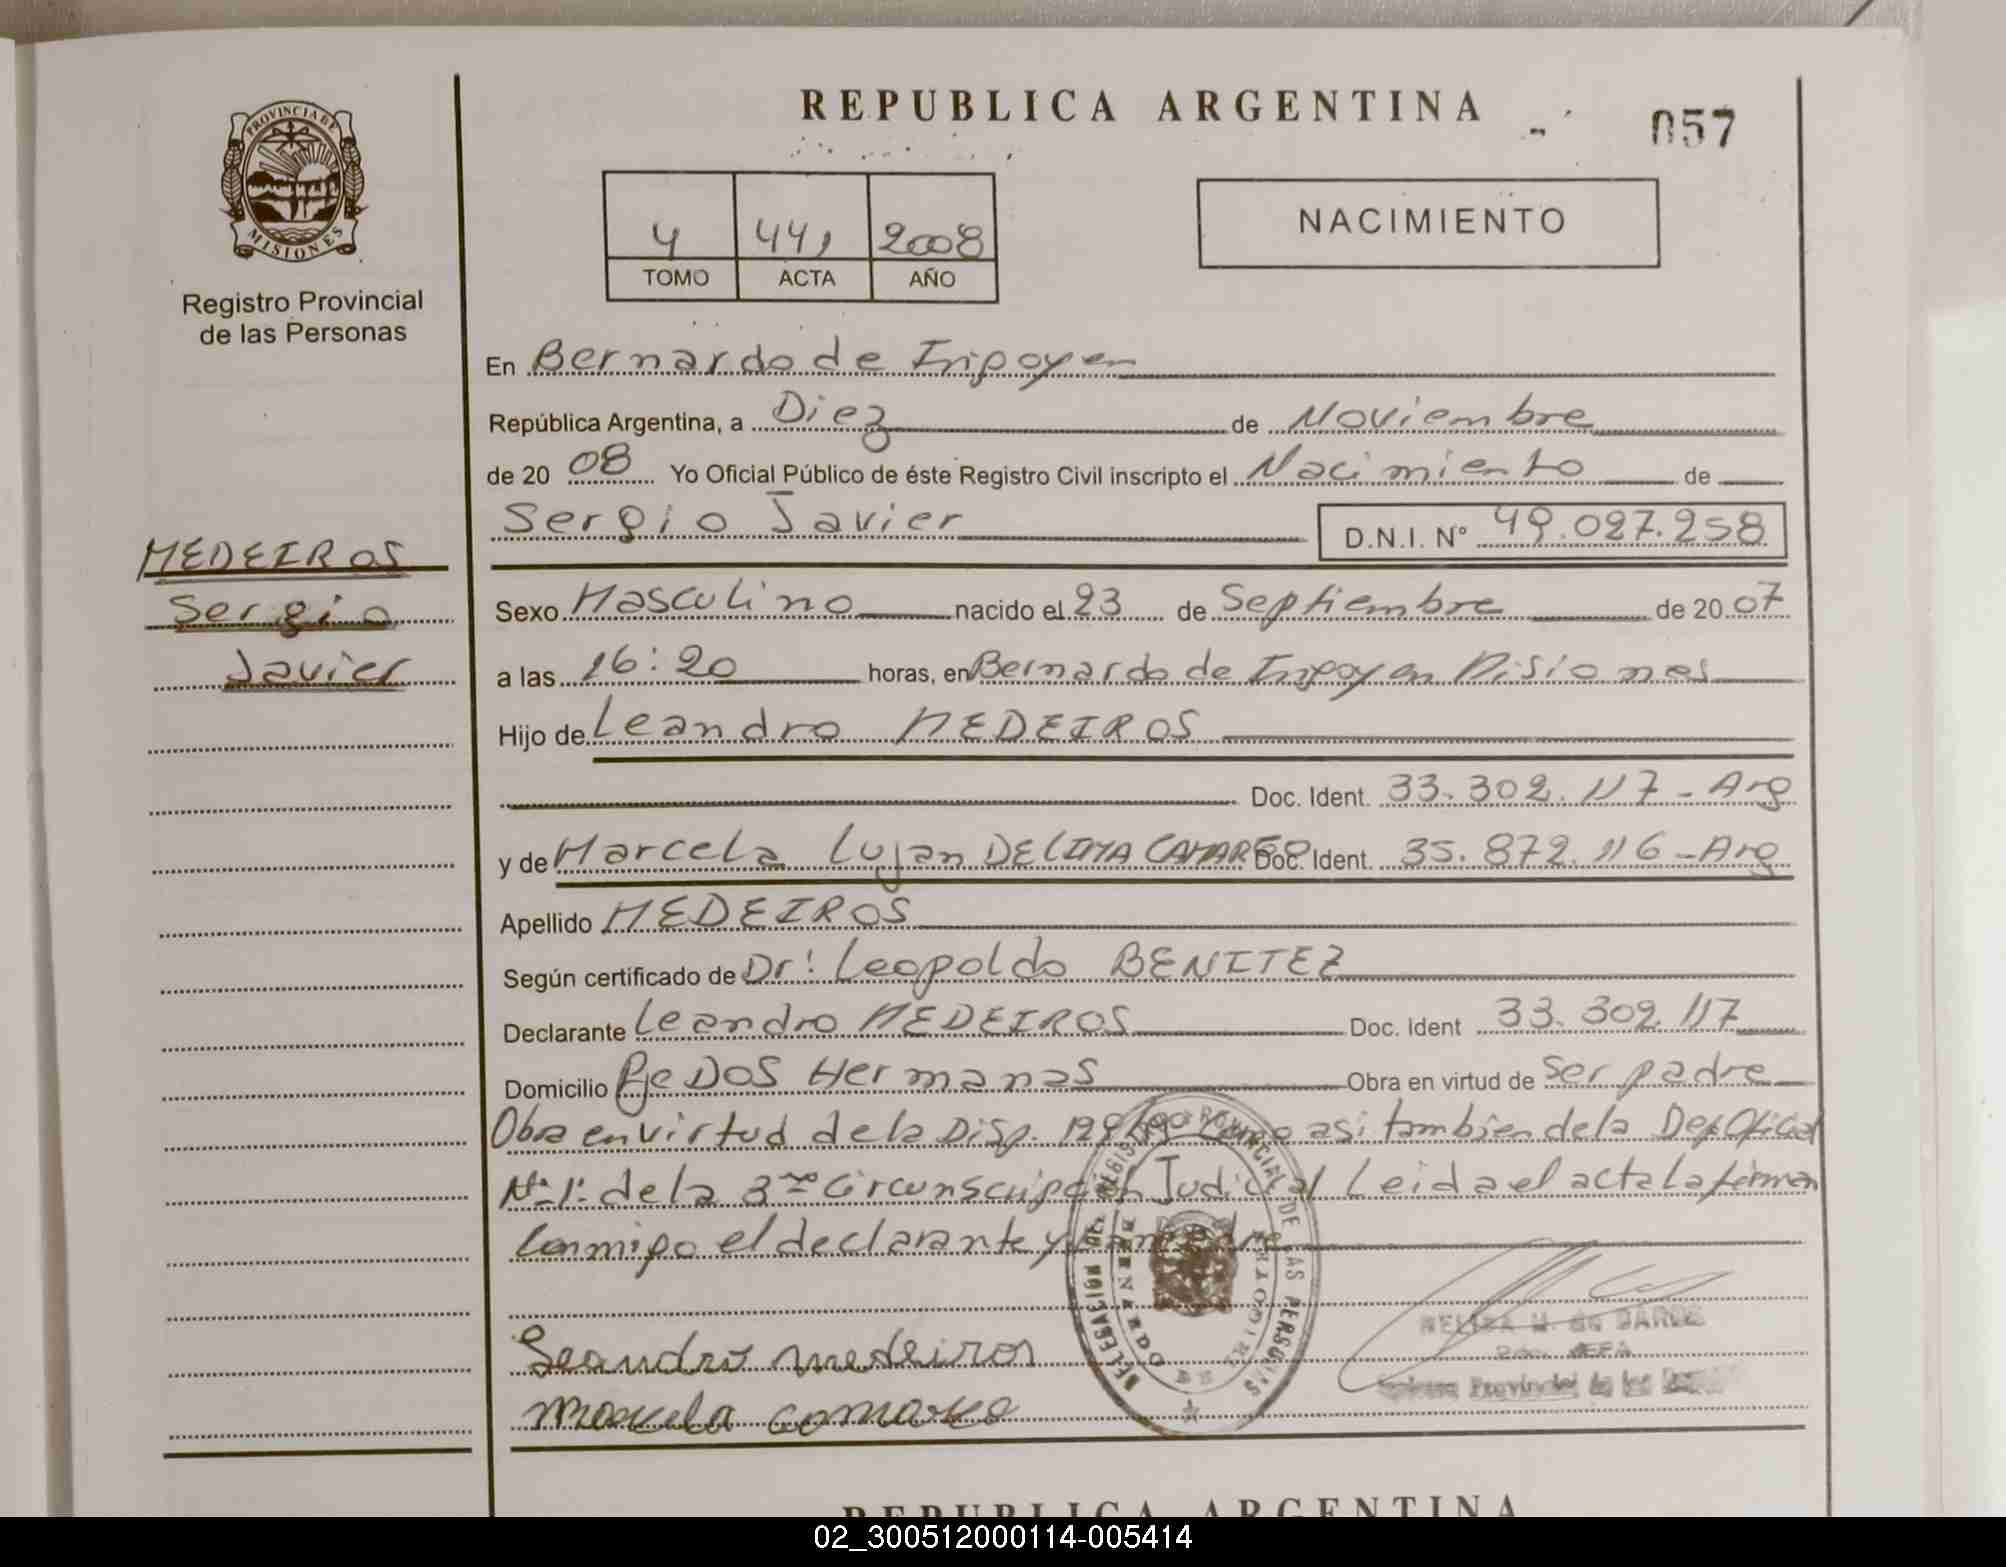 REPUBLICA ARGENTINA
057
PROVINCIA DE
MISIONES
Registro Provincial
de las Personas
4 441 2008
TOMO ACTA AÑO
NACIMIENTO
En Bernardo de Irigoyen
República Argentina, a Diez de Noviembre
de 20 08 Yo Oficial Público de éste Registro Civil inscripto el Nacimiento de
Sergio Javier D.N.I. Nº 49.027.258
MEDEIROS
Sergio
Javier
Sexo Masculino nacido el 23 de Septiembre de 20 07
a las 16:20 horas, en Bernardo de Irigoyen Misiones
Hijo de Leandro MEDEIROS
Doc. Ident. 33.302.117 - Arg
y de Marcela Lujan DE LIMA CAMARGO Doc. Ident. 35.872.116 - Arg
Apellido MEDEIROS
Según certificado de Dr: Leopoldo BENITEZ
Declarante Leandro MEDEIROS Doc. Ident 33.302.117
Domicilio Pje DOS Hermanas Obra en virtud de ser padre
Obra en virtud de la Disp. como asi tambien de la Def Oficial
Nº 1º de la 3ra Circunscripción Judicial Leida el acta la firman
Conmigo el declarante y la madre
Leandro medeiros
Marcela camargo
DELEGACION DEL REGISTRO PROVINCIAL DE LAS PERSONAS
BERNARDO DE IRIGOYEN